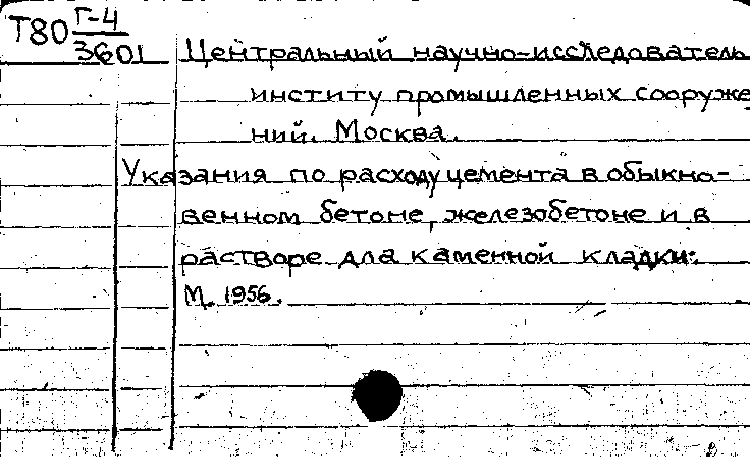 Т80 Г-4
3601
Центральный научно-исследователь
институ промышленных сооруже
ний. Москва.
Указания по расходу цемента в обыкно-
венном бетоне, железобетоне и в
растворе для каменной кладки.
М. 1956.